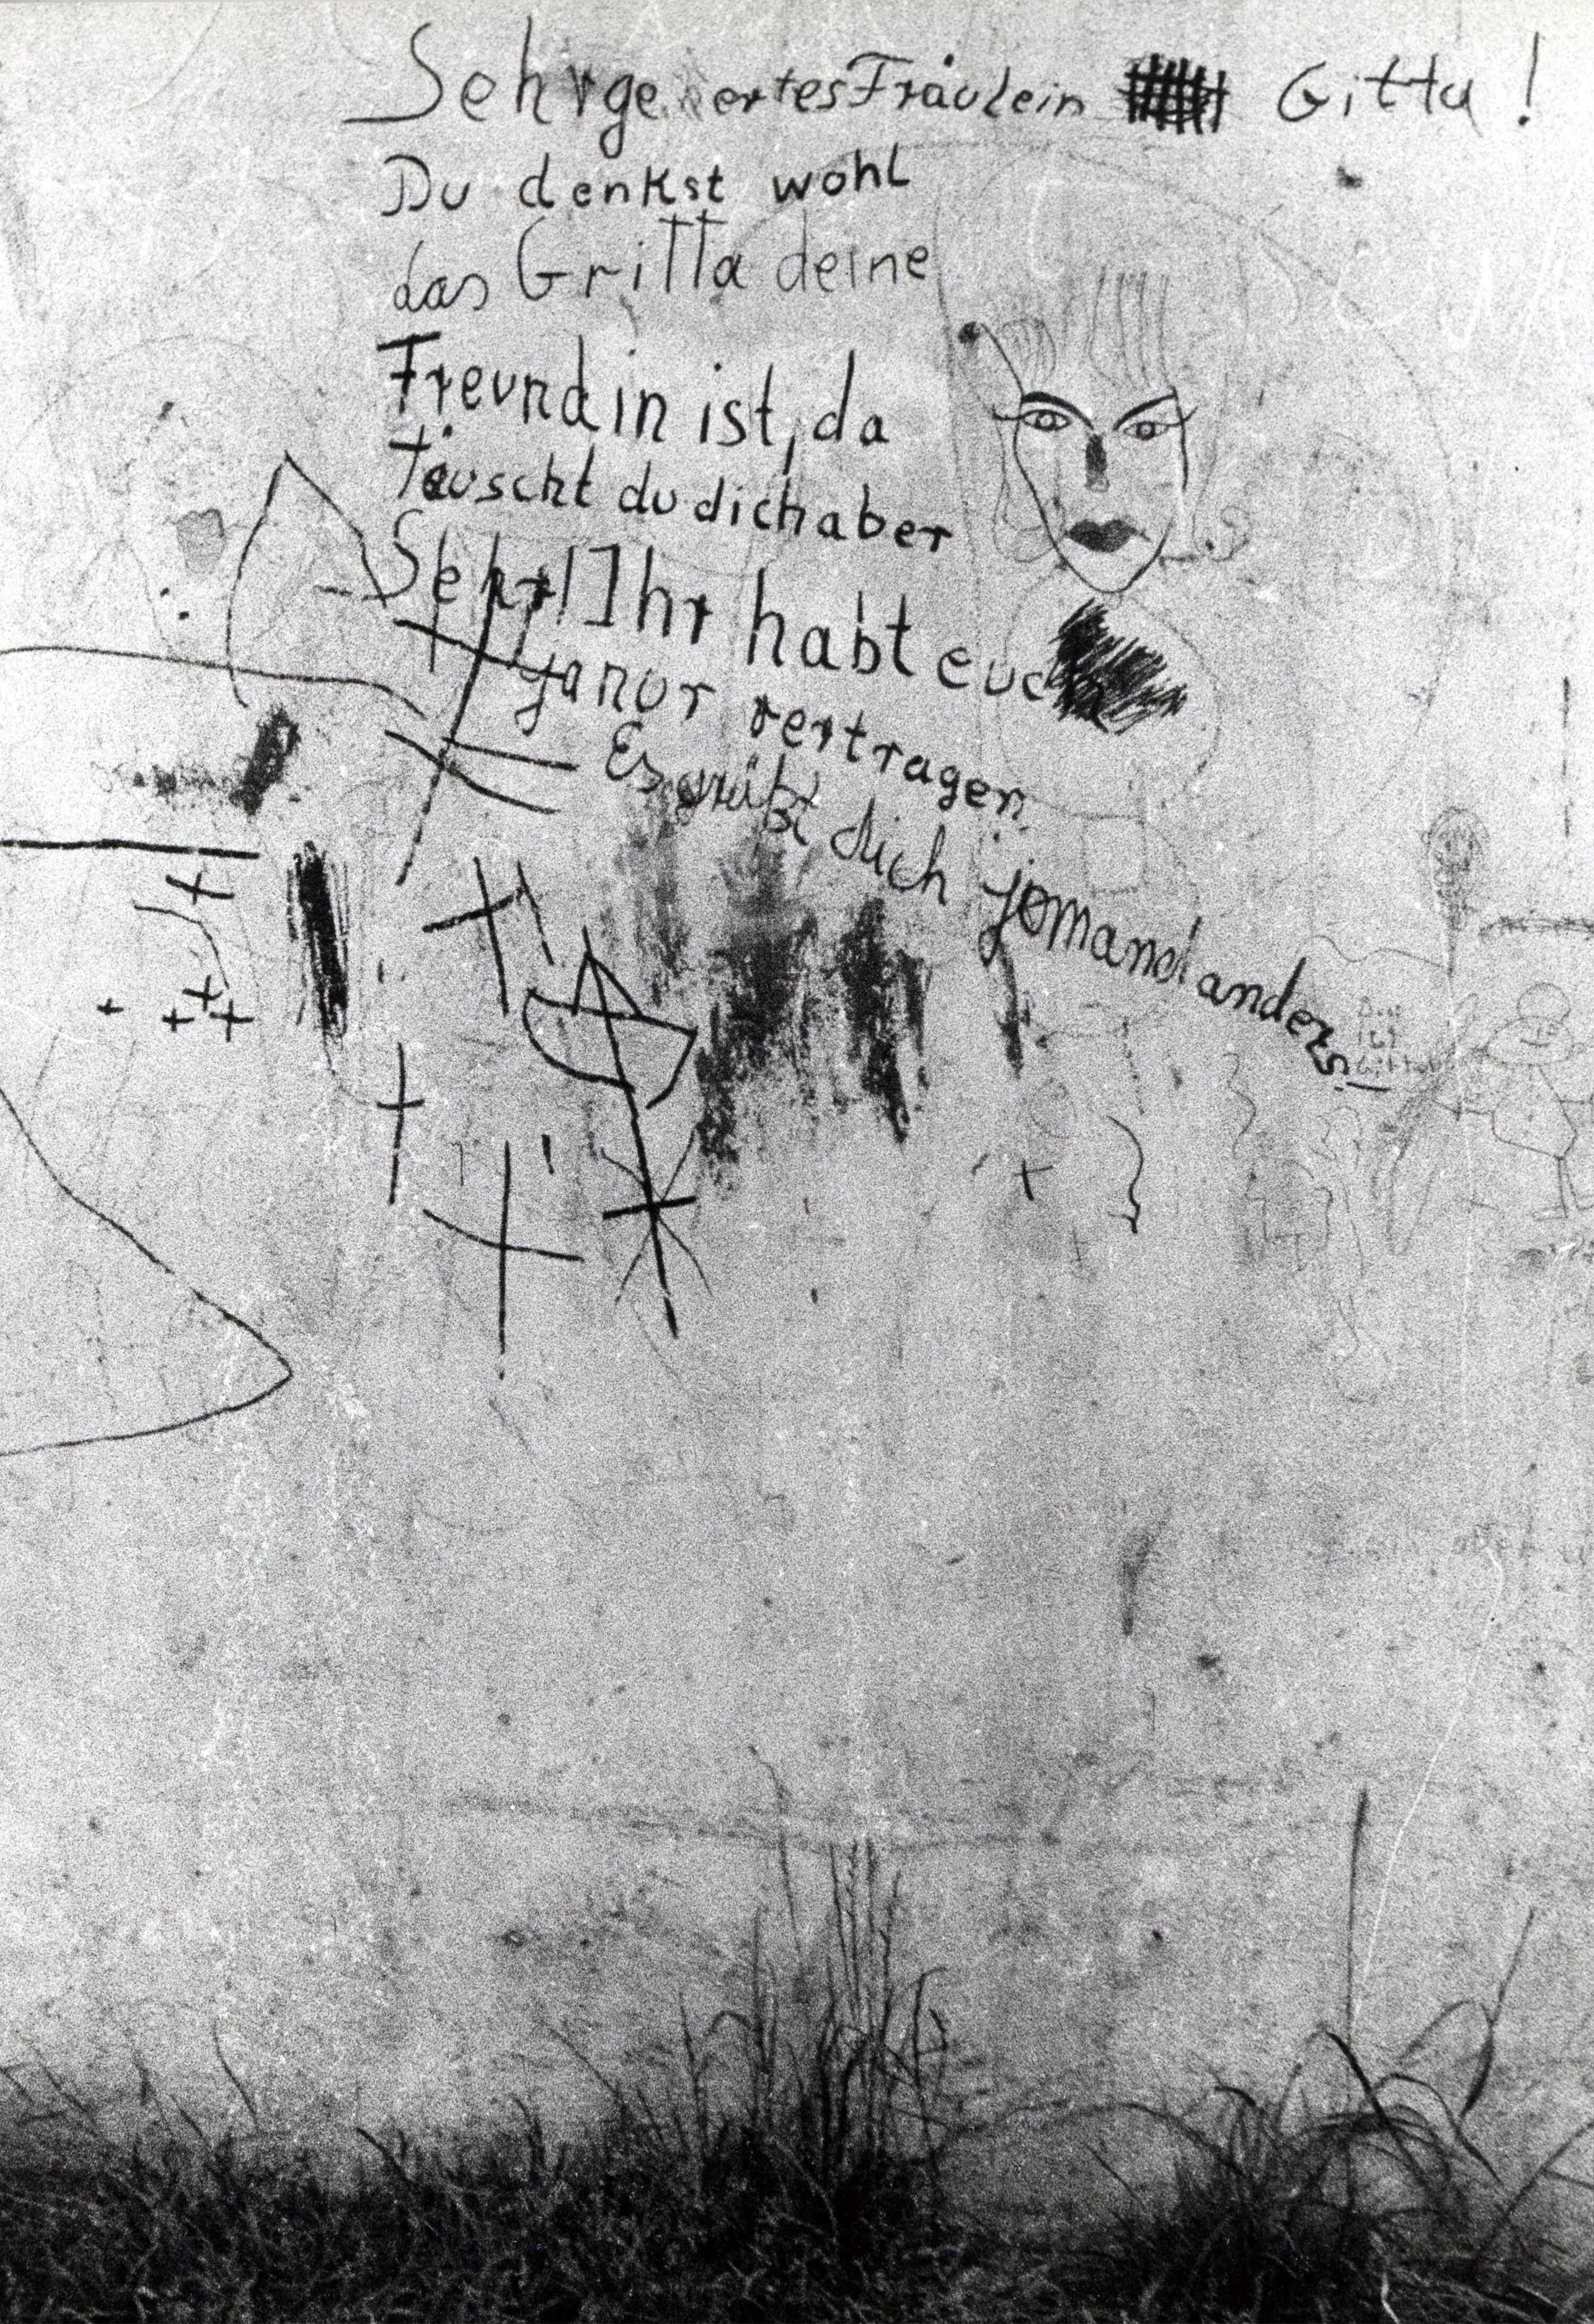 Sehrge ertes Fräulein Gitta!
Du denkst wohl
das Gritta deine
Freundin ist, da
täuscht du dich aber
Sehr! Ihr habt euch
ja nur vertragen
Es grüßt dich jemand anders!